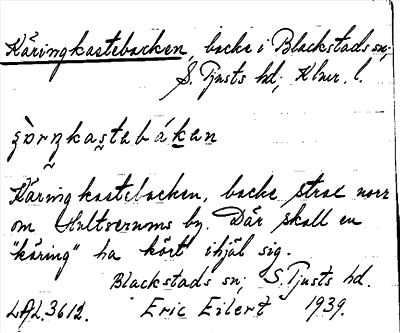 Käringkastebacken, backe i Blackstads sn;
S. Tjusts hd; Klmr. l.
Käringkastebacken, backe strax norr
om Hultserums by. Där skall en
"käring" ha kört ihjäl sig.
Blackstads sn; S. Tjusts hd.
LAL.3612. Eric Eilert 1939.